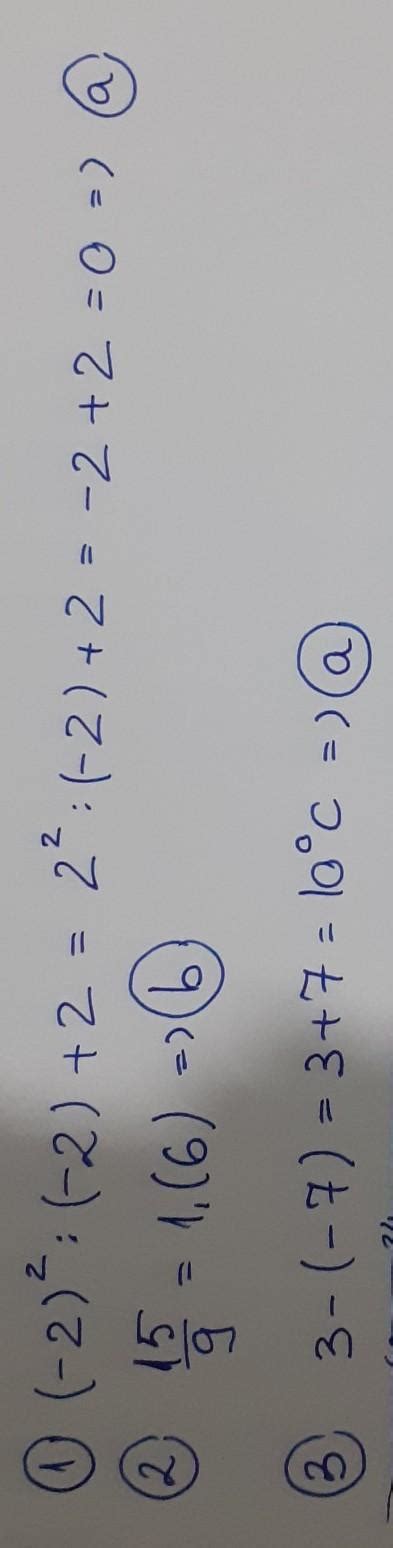 ① (-2)² : (-2) + 2 = 2² : (-2) + 2 = -2 + 2 = 0 => ⓐ
② 15/9 = 1,(6) => ⓑ
③ 3 - (-7) = 3 + 7 = 10°C => ⓐ